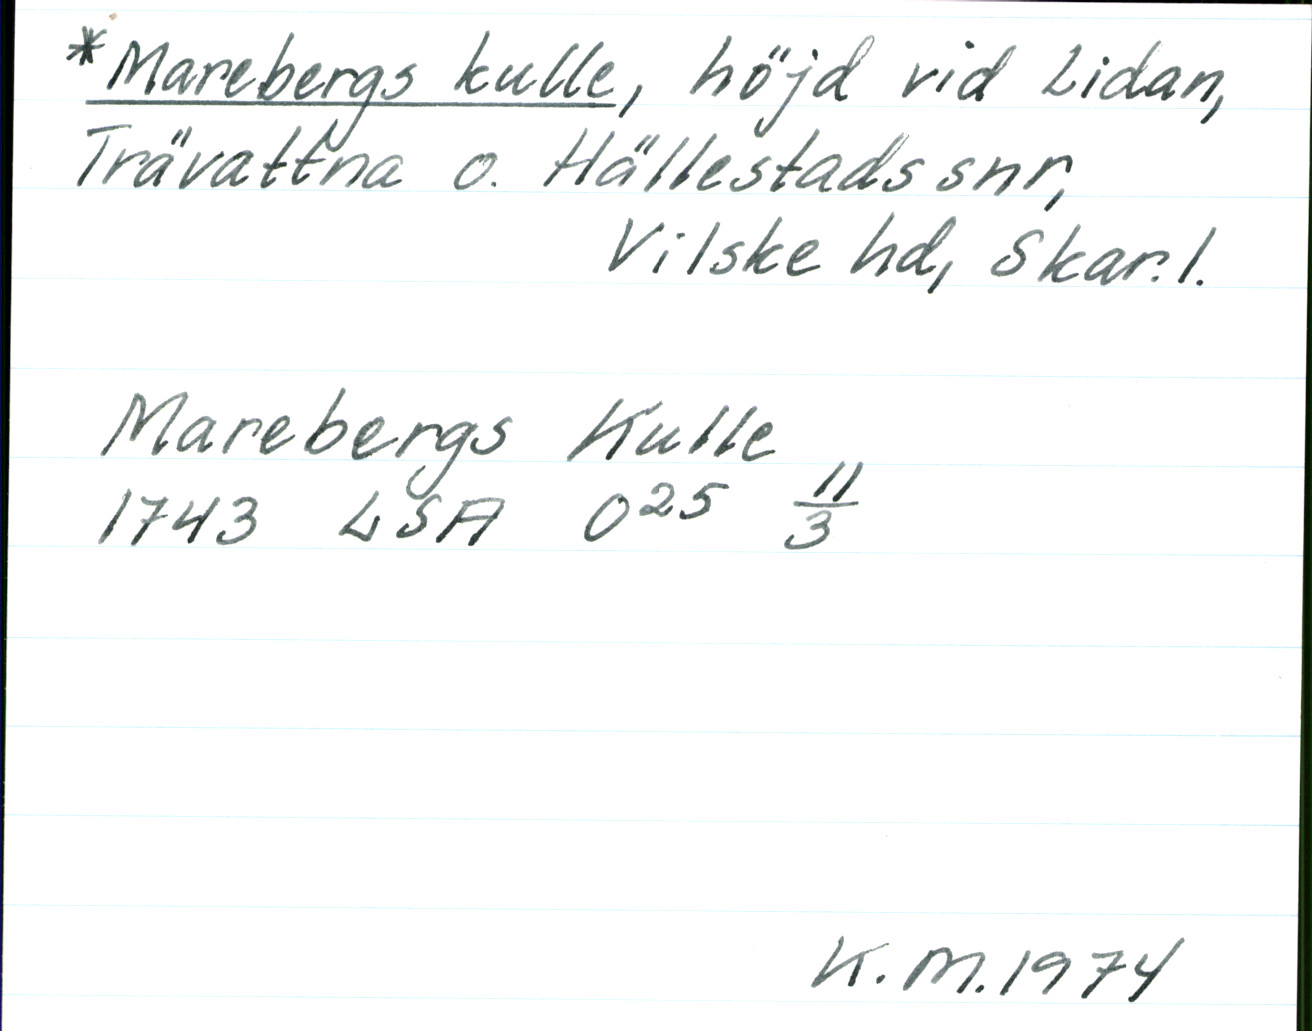 *Marebergs kulle, höjd vid Lidan,
Trävattna o. Hällestads snr,
Vilske hd, Skar. l.
Marebergs Kulle
1743 LSA O25 11/3
K. M. 1974